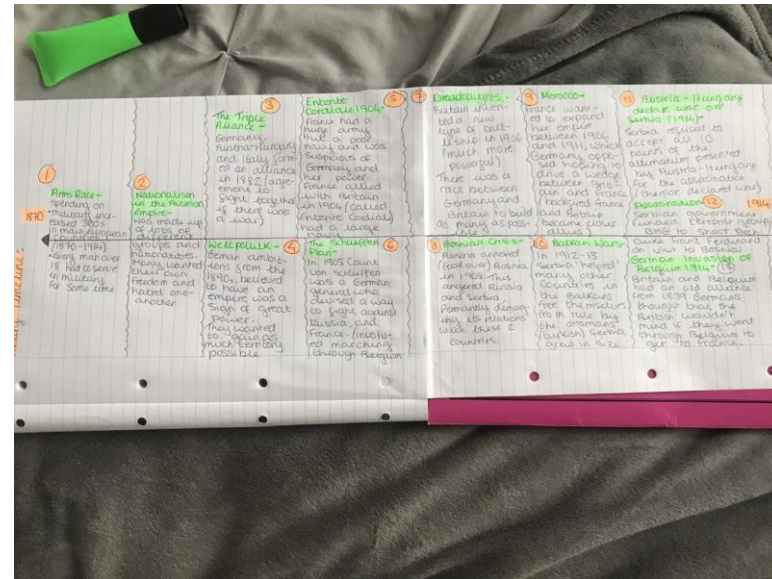 1
Arms Race -
spending on
military incr-
eased 300%
in main European
countries
(1870-1914)
every man over
18 had to serve
in military
for some time
1870
2
Nationalism
in the Russian
Empire -
was made up
of lots of
different
groups and
nationalities.
Many wanted
their own
freedom and
hated one-
another
3
The Triple
Alliance -
Germany,
Austria-Hungary
and Italy form-
ed an alliance
in 1882 (agre-
ement to
fight together
if there was
a war)
4
Weltpolitik -
German ambit-
ions from the
1890s, believed
to have an
empire was a
sign of great
power.
They wanted
to gain as
much territory
possible
5
Entente
Cordiale 1904-
France had a
huge army
but a poor
navy and was
suspicious of
Germany and
her power.
France allied
with Britain
in 1904 (called
Entente Cordiale)
had a large
6
The Schlieffen
Plan -
In 1905 Count
Von Schlieffen
was a German
general who
devised a way
to fight against
Russia and
France. Involv-
ed marching
through Belgium
7
Dreadnaughts -
Britain inven-
ted a new
type of batt-
leship in 1906
(much more
powerful)
There was a
race between
Germany and
Britain to build
as many as poss-
ible
8
Bosnian Crisis -
annexed
(took over) Bosnia
in 1908. This
angered Russia
and Serbia
damag-
ing its relations
with these 2
countries.
9
Morocco -
France want-
ed to expand
her empire
between 1906
and 1911, which
Germany oppo-
sed hoping to
drive a wedge
between Brit-
ain and France
backfired France
and Britain
became closer
allies)
10
Balkan Wars -
In 1912-13
Serbia 'helped'
many other
countries in
the Balkans
free themselves
from rule by
the Ottomans
(Turkish) Serbia
grew in size.
11
Austria-Hungary
declare war on
Serbia (1914) -
Serbia refused to
accept all 10
points of the
ultimatum presented
by Austria-Hungary
for the assassination
(therefore declared war)
Assassination 12
1914
Serbian government
funded terrorist group
BHG to shoot Arch
Duke Franz Ferdinand
on visit to Bosnia
German Invasion of
Belgium 1914 - 13
Britain and Belgium
had an old alliance
from 1839. Germans
thought that the
British wouldn't
mind if they went
through Belgium to
get to France.
Timeline: